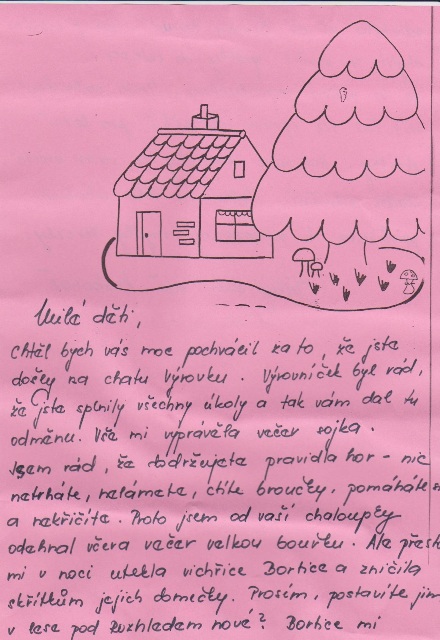 Milé děti,
Chtěl bych vás moc pochválit za to, že jste
došly na chatu Výrovku. Výrovníček byl rád,
že jste splnily všechny úkoly a tak vám dal tu
odměnu. Vše mi vyprávěla večer sojka.
Jsem rád, že dodržujete pravidla hor - nic
netrháte, nelámete, ctíte broučky, pomáháte
a nekřičíte. Proto jsem od vaší chaloupky
odehnal včera večer velkou bouřku. Ale přesto
mi v noci utekla vichřice Bortice a zničila
skřítkům jejich domečky. Prosím, postavíte jim
v lese pod Rozhledem nové? Bortice mi